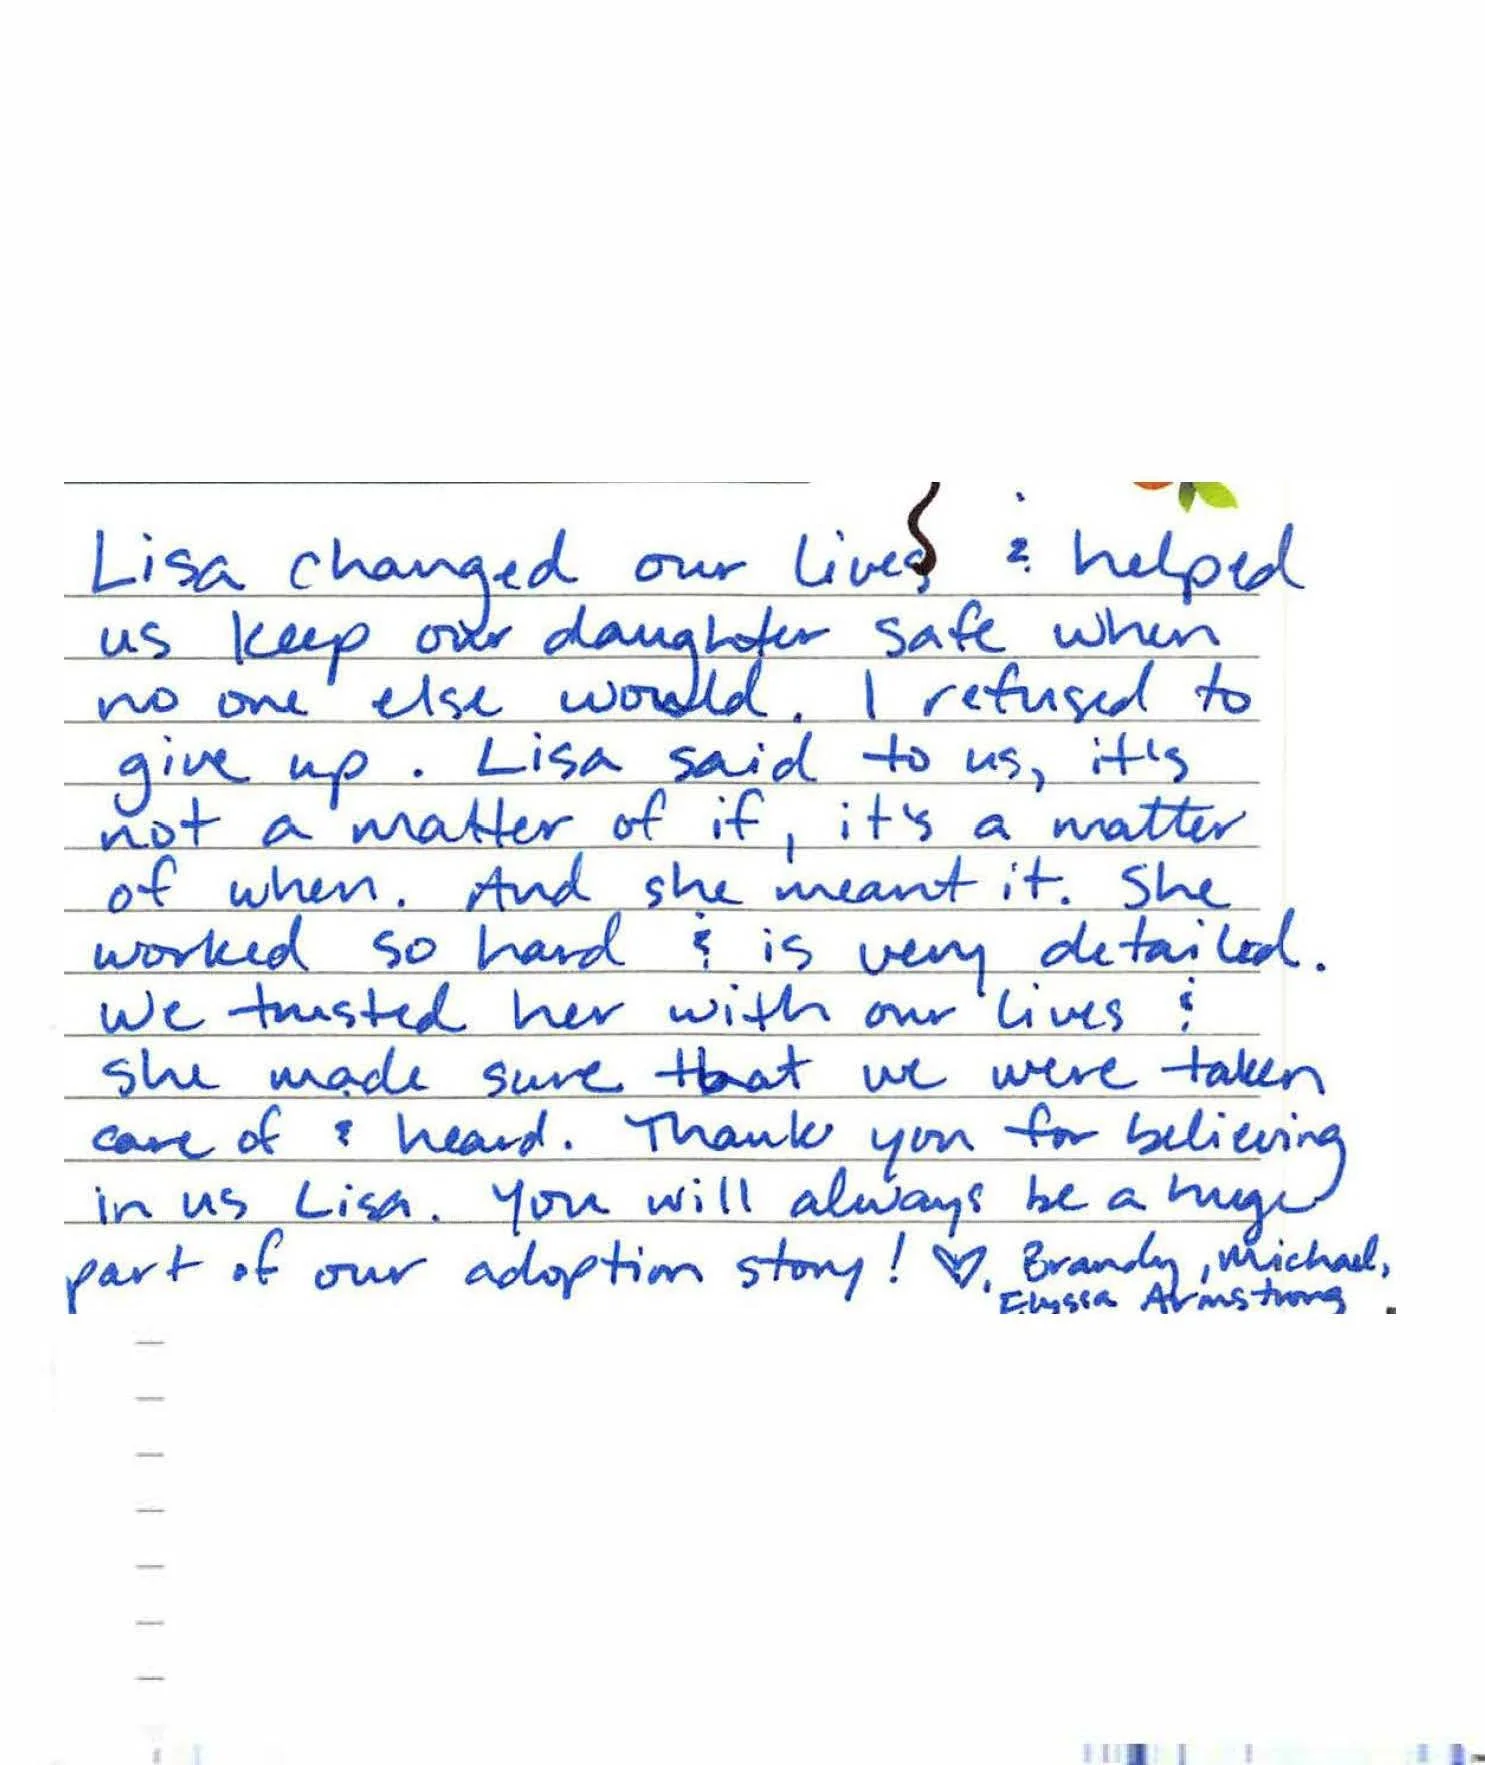 Lisa changed our lives & helped
us keep our daughter safe when
no one else would. I refused to
give up. Lisa said to us, it's
not a matter of if, it's a matter
of when. And she meant it. She
worked so hard & is very detailed.
We trusted her with our lives &
she made sure that we were taken
care of & heard. Thank you for believing
in us Lisa. You will always be a huge
part of our adoption story! ♡, Brandy, Michael,
Elyssa Armstrong